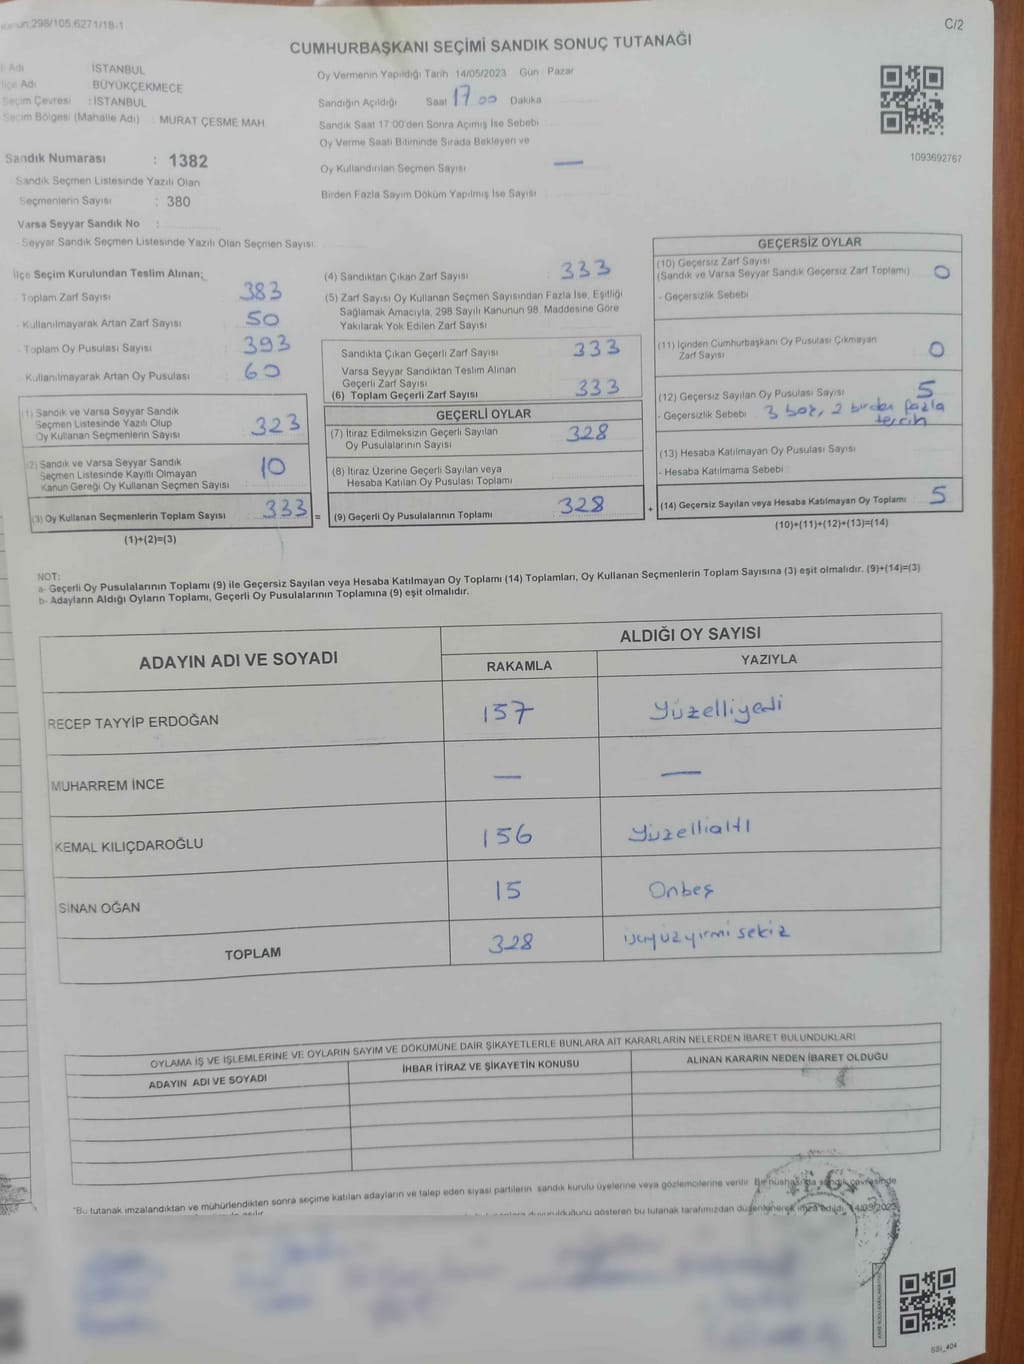 298/105,6271/18-1
C/2
CUMHURBAŞKANI SEÇİMİ SANDIK SONUÇ TUTANAĞI
Adı İSTANBUL
Adı BÜYÜKÇEKMECE
Seçim Çevresi : İSTANBUL
Seçim Bölgesi (Mahalle Adı) : MURAT ÇEŞME MAH.
Sandık Numarası : 1382
Sandık Seçmen Listesinde Yazılı Olan
Seçmenlerin Sayısı : 380
Varsa Seyyar Sandık No :
- Seyyar Sandık Seçmen Listesinde Yazılı Olan Seçmen Sayısı:
Oy Vermenin Yapıldığı Tarih 14/05/2023 Gün Pazar
Sandığın Açıldığı Saat 17 00 Dakika
Sandık Saat 17:00'den Sonra Açımış İse Sebebi
Oy Verme Saati Bitiminde Sırada Bekleyen ve
Oy Kullandırılan Seçmen Sayısı —
Birden Fazla Sayım Döküm Yapılmış İse Sayısı
1093692767
İlçe Seçim Kurulundan Teslim Alınan;
- Toplam Zarf Sayısı 383
- Kullanılmayarak Artan Zarf Sayısı 50
- Toplam Oy Pusulası Sayısı 393
- Kullanılmayarak Artan Oy Pusulası 60
(1) Sandık ve Varsa Seyyar Sandık
Seçmen Listesinde Yazılı Olup
Oy Kullanan Seçmenlerin Sayısı 323
(2) Sandık ve Varsa Seyyar Sandık
Seçmen Listesinde Kayıtlı Olmayan
Kanun Gereği Oy Kullanan Seçmen Sayısı 10
(3) Oy Kullanan Seçmenlerin Toplam Sayısı 333 =
(1)+(2)=(3)
(4) Sandıktan Çıkan Zarf Sayısı 333
(5) Zarf Sayısı Oy Kullanan Seçmen Sayısından Fazla İse, Eşitliği
Sağlamak Amacıyla, 298 Sayılı Kanunun 98. Maddesine Göre
Yakılarak Yok Edilen Zarf Sayısı
Sandıkta Çıkan Geçerli Zarf Sayısı 333
Varsa Seyyar Sandıktan Teslim Alınan
Geçerli Zarf Sayısı
(6) Toplam Geçerli Zarf Sayısı 333
GEÇERLİ OYLAR
(7) İtiraz Edilmeksizin Geçerli Sayılan
Oy Pusulalarının Sayısı 328
(8) İtiraz Üzerine Geçerli Sayılan veya
Hesaba Katılan Oy Pusulası Toplamı
(9) Geçerli Oy Pusulalarının Toplamı 328 +
GEÇERSİZ OYLAR
(10) Geçersiz Zarf Sayısı
(Sandık ve Varsa Seyyar Sandık Geçersiz Zarf Toplamı) 0
- Geçersizlik Sebebi
(11) İçinden Cumhurbaşkanı Oy Pusulası Çıkmayan
Zarf Sayısı 0
(12) Geçersiz Sayılan Oy Pusulası Sayısı 5
- Geçersizlik Sebebi 3 boş, 2 birden fazla
tercih
(13) Hesaba Katılmayan Oy Pusulası Sayısı
- Hesaba Katılmama Sebebi
(14) Geçersiz Sayılan veya Hesaba Katılmayan Oy Toplamı 5
(10)+(11)+(12)+(13)=(14)
NOT:
a- Geçerli Oy Pusulalarının Toplamı (9) ile Geçersiz Sayılan veya Hesaba Katılmayan Oy Toplamı (14) Toplamları, Oy Kullanan Seçmenlerin Toplam Sayısına (3) eşit olmalıdır. (9)+(14)=(3)
b- Adayların Aldığı Oyların Toplamı, Geçerli Oy Pusulalarının Toplamına (9) eşit olmalıdır.
ADAYIN ADI VE SOYADI
ALDIĞI OY SAYISI
RAKAMLA YAZIYLA
RECEP TAYYİP ERDOĞAN 157 Yüzelliyedi
MUHARREM İNCE — —
KEMAL KILIÇDAROĞLU 156 Yüzellialtı
SİNAN OĞAN 15 Onbeş
TOPLAM 328 üçyüzyirmi sekiz
OYLAMA İŞ VE İŞLEMLERİNE VE OYLARIN SAYIM VE DÖKÜMÜNE DAİR ŞİKAYETLERLE BUNLARA AİT KARARLARIN NELERDEN İBARET BULUNDUKLARI
ADAYIN ADI VE SOYADI İHBAR İTİRAZ VE ŞİKAYETİN KONUSU ALINAN KARARIN NEDEN İBARET OLDUĞU
*Bu tutanak imzalandıktan ve mühürlendikten sonra seçime katılan adayların ve talep eden siyasi partilerin sandık kurulu üyelerine veya gözlemcilerine verilir. Bir nüshası da sandık çevresinde
duyurulduğunu gösteren bu tutanak tarafımızdan düzenlenerek imza edildi. 14/05/2023
SSI_404